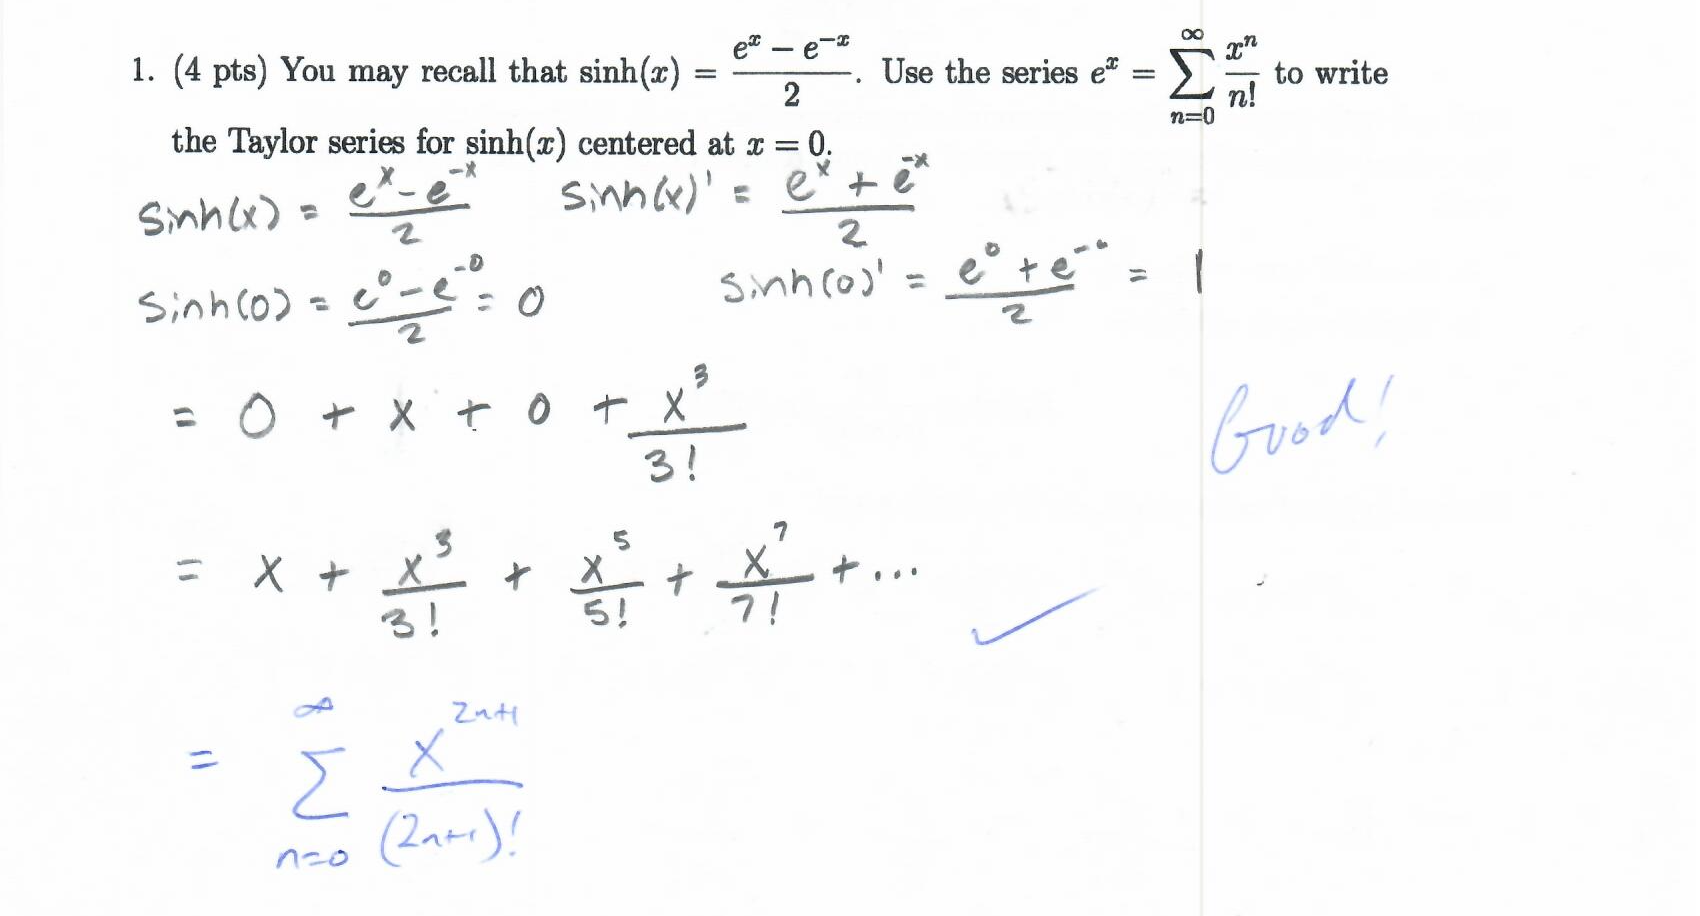 1. (4 pts) You may recall that sinh(x) = (e^x − e^−x)/2. Use the series e^x = ∑_{n=0}^{∞} x^n/n! to write
the Taylor series for sinh(x) centered at x = 0.
Sinh(x) = (e^x − e^−x)/2    Sinh(x)' = (e^x + e^−x)/2
Sinh(0) = (e^0 − e^−0)/2 = 0    Sinh(0)' = (e^0 + e^−0)/2 = 1
= 0 + x + 0 + x^3/3!
Good!
= x + x^3/3! + x^5/5! + x^7/7! + ... ✓
= ∑_{n=0}^{∞} x^{2n+1}/(2n+1)!